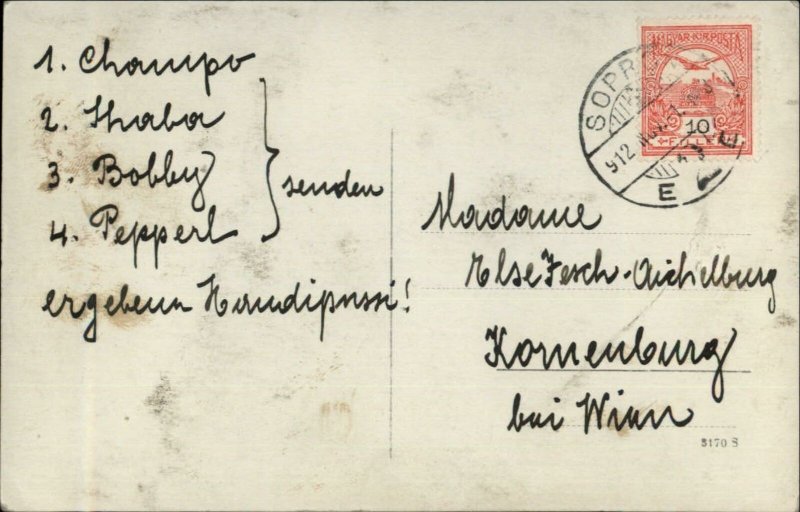 1. Champo
2. Thaba
3. Bobby
4. Pepperl
senden
ergebenn Handipussi!
MAGYAR KIR. POSTA
10
SOPR
912
E
Madame
Else Fesch-Aichelburg
Korneuburg
bei Wien
5170 S